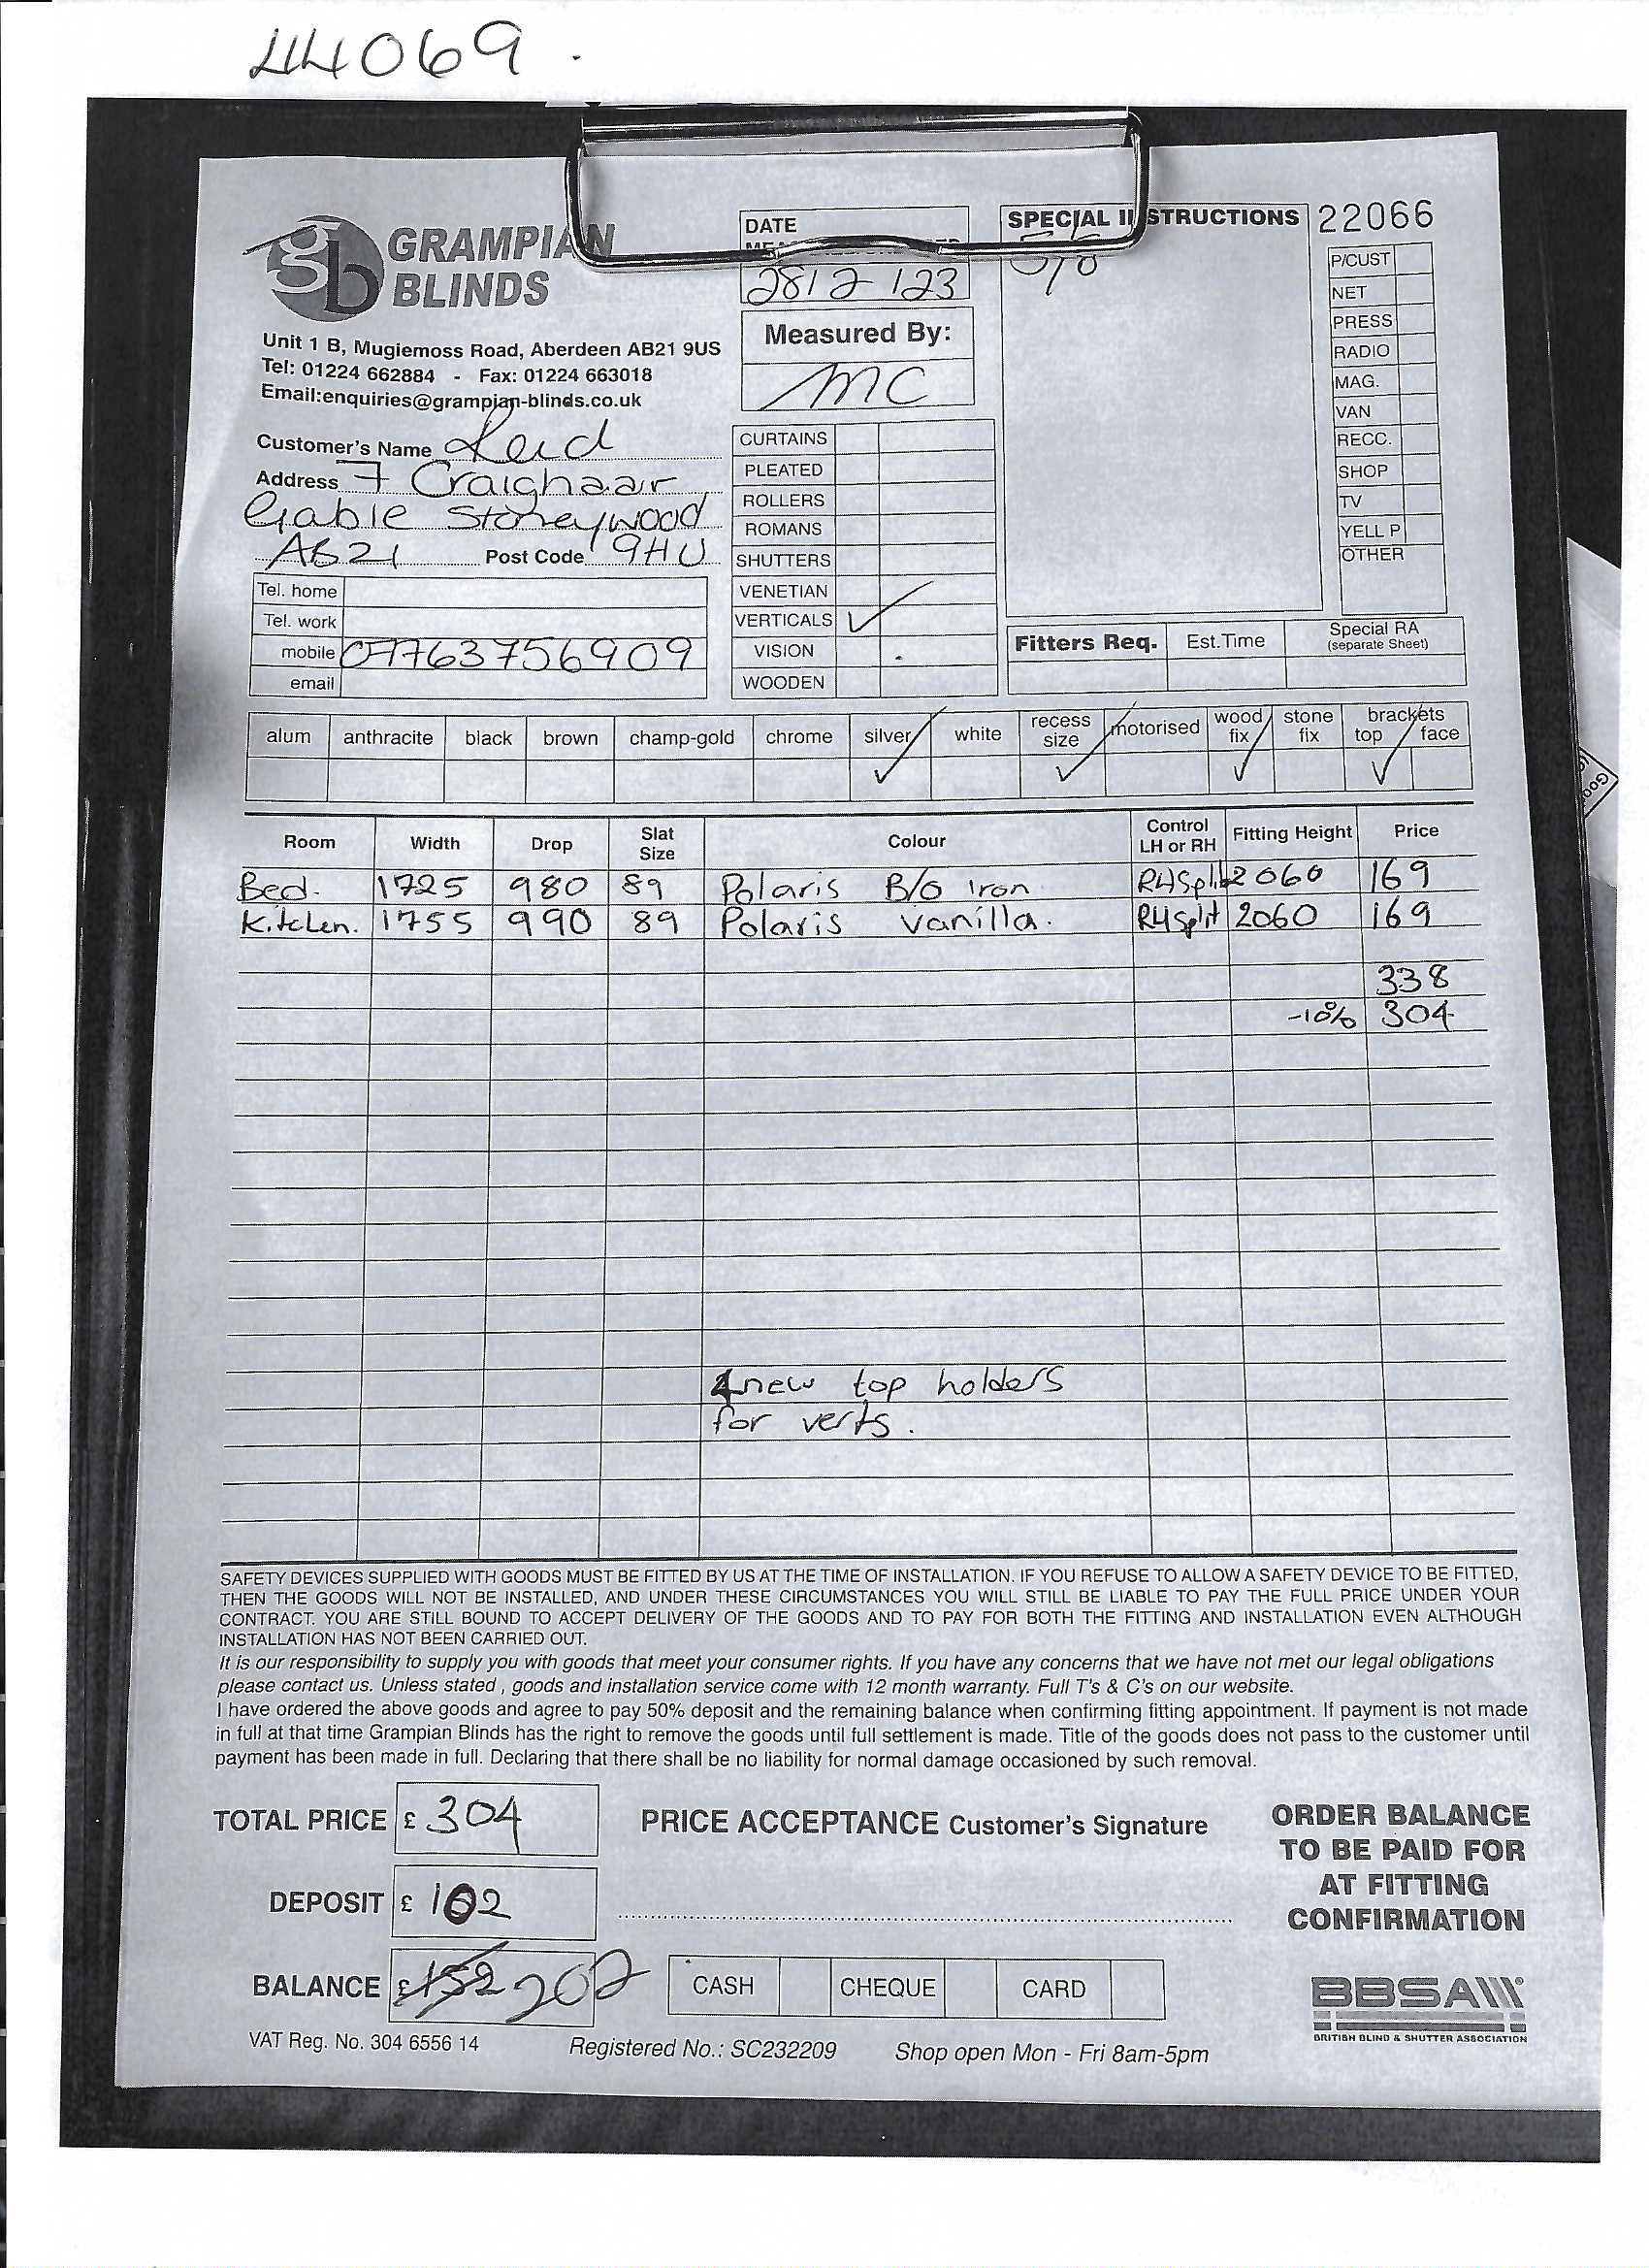 44069.
GRAMPIAN
BLINDS
Unit 1 B, Mugiemoss Road, Aberdeen AB21 9US
Tel: 01224 662884 - Fax: 01224 663018
Email:enquiries@grampian-blinds.co.uk
DATE
2812 123
Measured By:
MC
SPECIAL INSTRUCTIONS
22066
P/CUST
NET
PRESS
RADIO
MAG.
VAN
RECC.
SHOP
TV
YELL P
OTHER
Customer's Name Reid
Address 7 Craighaar
Gable Stoneywood
AB21 Post Code 9HU
Tel. home
Tel. work
mobile 07763756909
email
CURTAINS
PLEATED
ROLLERS
ROMANS
SHUTTERS
VENETIAN
VERTICALS ✓
VISION
WOODEN
Fitters Req. Est.Time Special RA (separate Sheet)
alum anthracite black brown champ-gold chrome silver white recess size motorised wood fix stone fix brackets top face
✓ ✓ ✓ ✓
Room Width Drop Slat Size Colour Control LH or RH Fitting Height Price
Bed. 1725 980 89 Polaris B/O Iron RHSplit 2060 169
Kitchen. 1755 990 89 Polaris Vanilla. RHSplit 2060 169
338
-10% 304
4 new top holders
for verts.
SAFETY DEVICES SUPPLIED WITH GOODS MUST BE FITTED BY US AT THE TIME OF INSTALLATION. IF YOU REFUSE TO ALLOW A SAFETY DEVICE TO BE FITTED,
THEN THE GOODS WILL NOT BE INSTALLED, AND UNDER THESE CIRCUMSTANCES YOU WILL STILL BE LIABLE TO PAY THE FULL PRICE UNDER YOUR
CONTRACT. YOU ARE STILL BOUND TO ACCEPT DELIVERY OF THE GOODS AND TO PAY FOR BOTH THE FITTING AND INSTALLATION EVEN ALTHOUGH
INSTALLATION HAS NOT BEEN CARRIED OUT.
It is our responsibility to supply you with goods that meet your consumer rights. If you have any concerns that we have not met our legal obligations
please contact us. Unless stated, goods and installation service come with 12 month warranty. Full T's & C's on our website.
I have ordered the above goods and agree to pay 50% deposit and the remaining balance when confirming fitting appointment. If payment is not made
in full at that time Grampian Blinds has the right to remove the goods until full settlement is made. Title of the goods does not pass to the customer until
payment has been made in full. Declaring that there shall be no liability for normal damage occasioned by such removal.
TOTAL PRICE £ 304
PRICE ACCEPTANCE Customer's Signature
ORDER BALANCE
TO BE PAID FOR
AT FITTING
CONFIRMATION
DEPOSIT £ 102
BALANCE £ 152 202
CASH CHEQUE CARD
BBSA
BRITISH BLIND & SHUTTER ASSOCIATION
VAT Reg. No. 304 6556 14 Registered No.: SC232209 Shop open Mon - Fri 8am-5pm